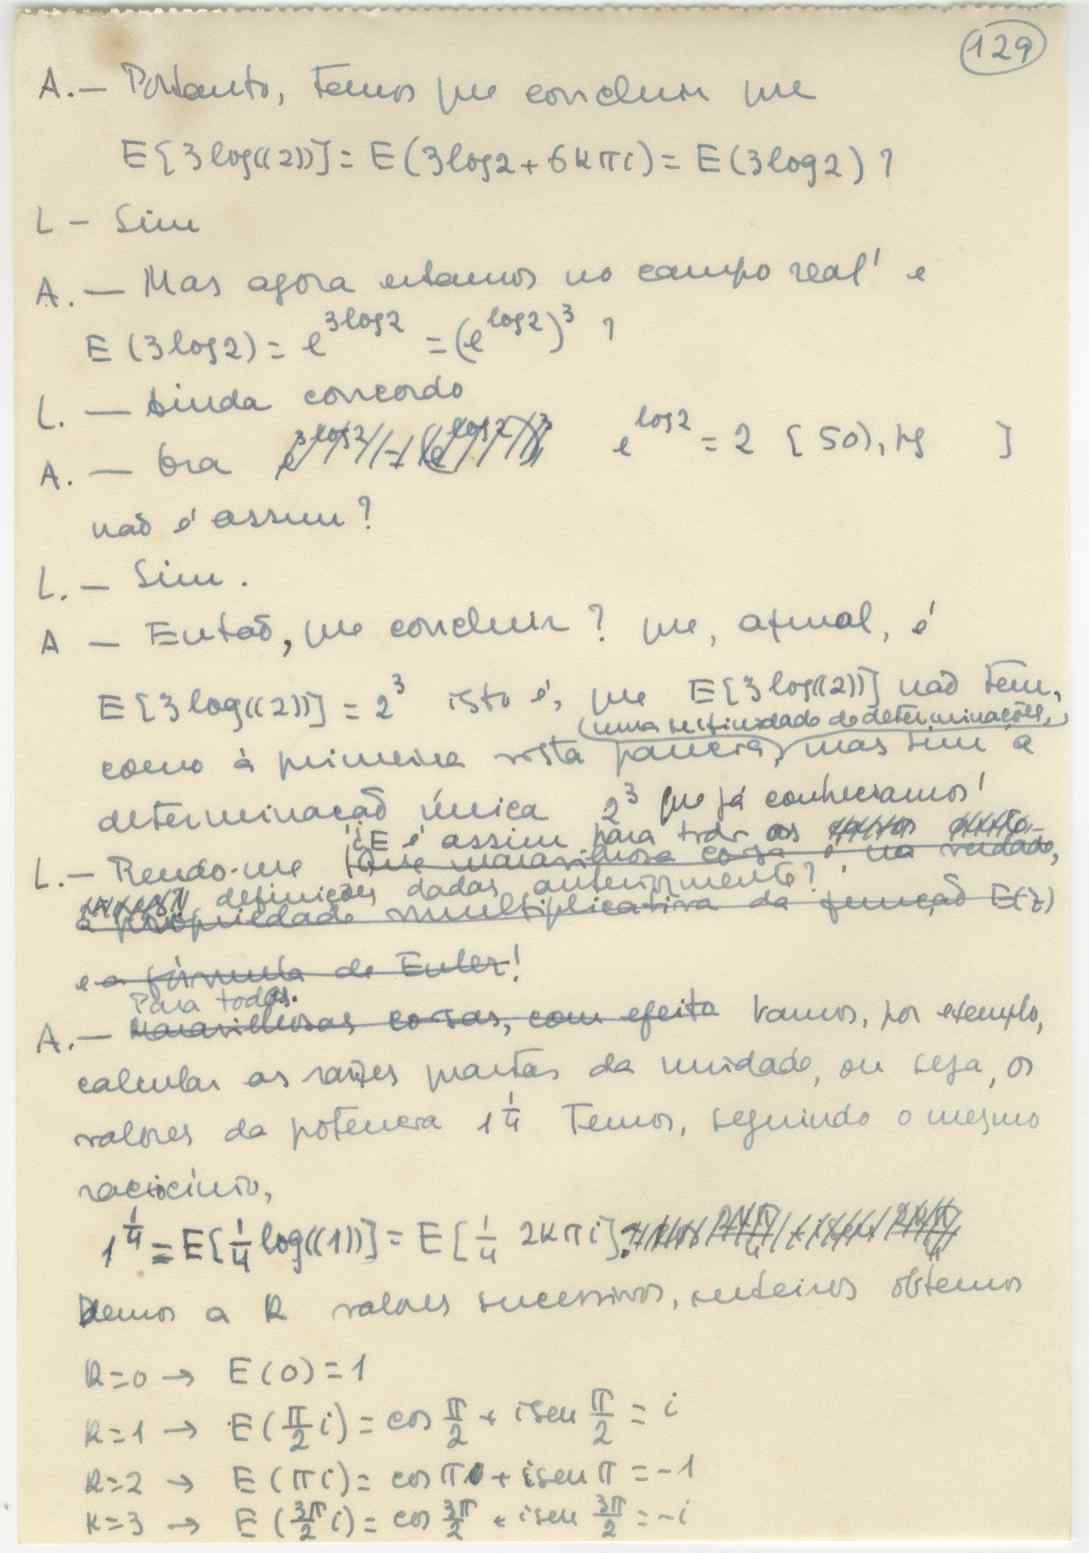 129
A. — Portanto, temos que concluir que
E[3log((2))] = E(3log2 + 6kπi) = E(3log2) ?
L — Sim
A. — Mas agora estamos no campo real e
E(3log2) = e^{3log2} = (e^{log2})^3 ?
L. — Ainda concordo
A. — Ora e^{log2} = 2 [50), pg ]
não é assim?
L. — Sim.
A — Então, que concluir? que, afinal, é
E[3log((2))] = 2^3 isto é, que E[3log((2))] não tem,
(uma infinidade de determinações,)
como à primeira vista parecia, mas sim a
determinação única 2^3 que já conhecíamos!
E é assim para todas as
L. — Rendo-me! Que maravilhosa coisa é, na verdade,
definições dadas anteriormente?
a propriedade multiplicativa da função E(z)
e a fórmula de Euler!
Para todas.
A. — Maravilhosas coisas, com efeito Vamos, por exemplo,
calcular as raízes quartas da unidade, ou seja, os
valores da potência 1^{1/4} Temos, seguindo o mesmo
raciocínio,
1^{1/4} = E[1/4 log((1))] = E[1/4 2kπi].
Demos a k valores sucessivos, inteiros obtemos
k=0 → E(0) = 1
k=1 → E(π/2 i) = cos π/2 + i sen π/2 = i
k=2 → E(πi) = cos π + i sen π = -1
k=3 → E(3π/2 i) = cos 3π/2 + i sen 3π/2 = -i